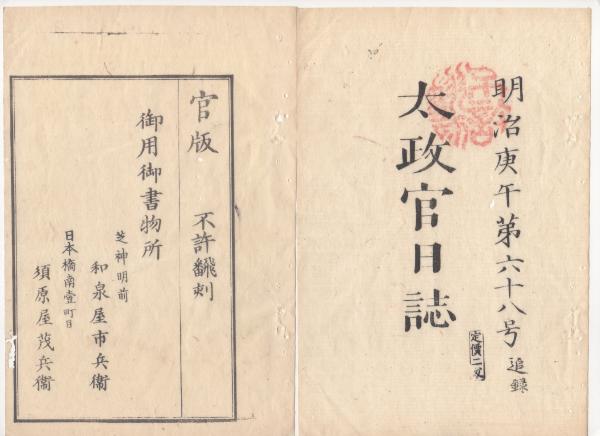 明治庚午第六十八号 追録
太政官日誌
定價二匁
官版 不許飜刻
御用御書物所
芝神明前
和泉屋市兵衞
日本橋南壹町目
須原屋茂兵衞